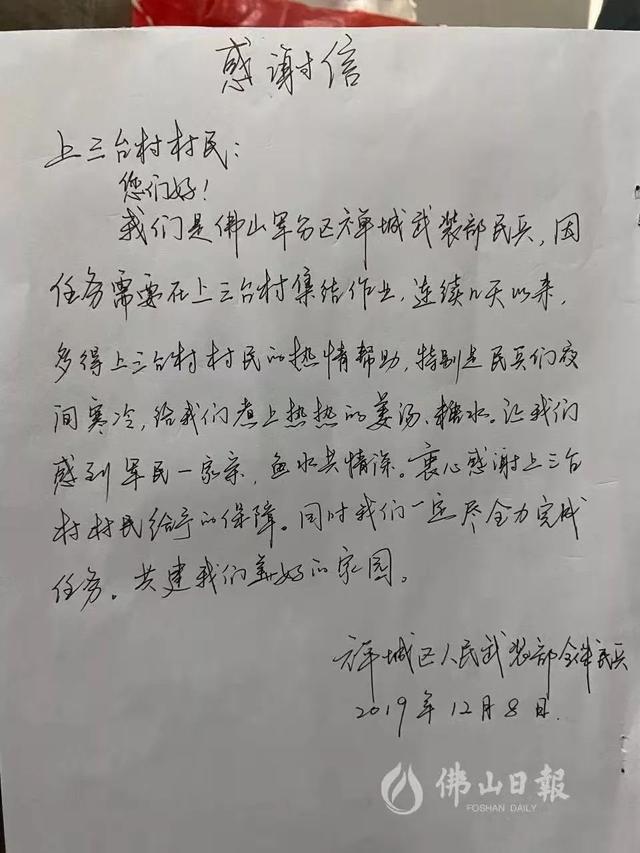 感谢信
上三台村村民：
您们好！
我们是佛山军分区禅城武装部民兵，因
任务需要在上三台村集结作业，连续几天以来，
多得上三台村村民的热情帮助，特别是民兵们夜
间寒冷，给我们煮上热热的姜汤、糖水。让我们
感到军民一家亲，鱼水共情深。衷心感谢上三台
村村民给予的保障。同时我们一定尽全力完成
任务。共建我们美好的家园。
禅城区人民武装部全体民兵
2019年12月8日.
佛山日報
FOSHAN DAILY